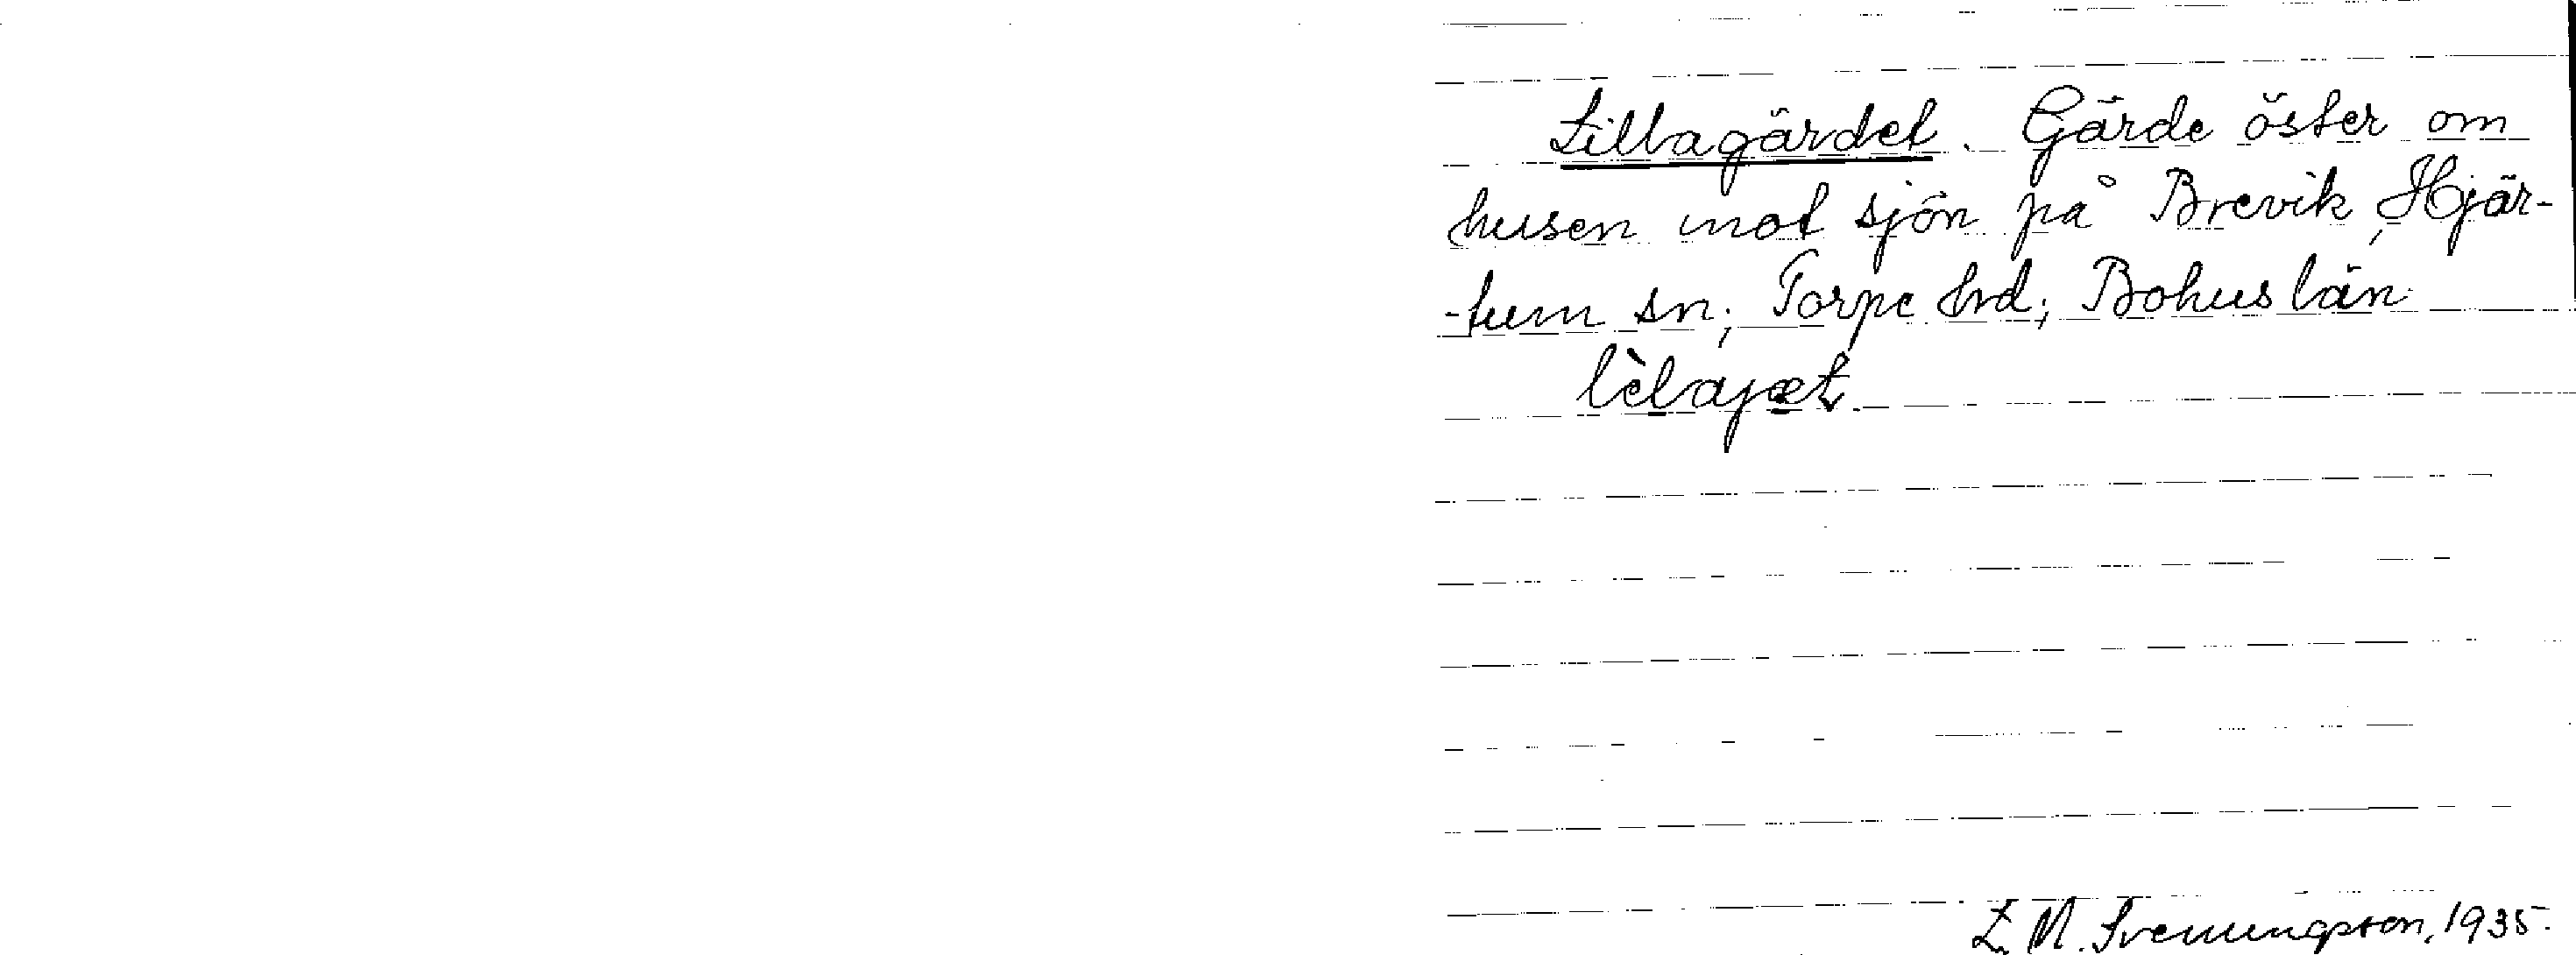 Lillagärdet. Gärde öster om
husen mot sjön på Brevik, Hjär-
-tum sn; Torpe hrd; Bohus län
lèlajæt
1935.